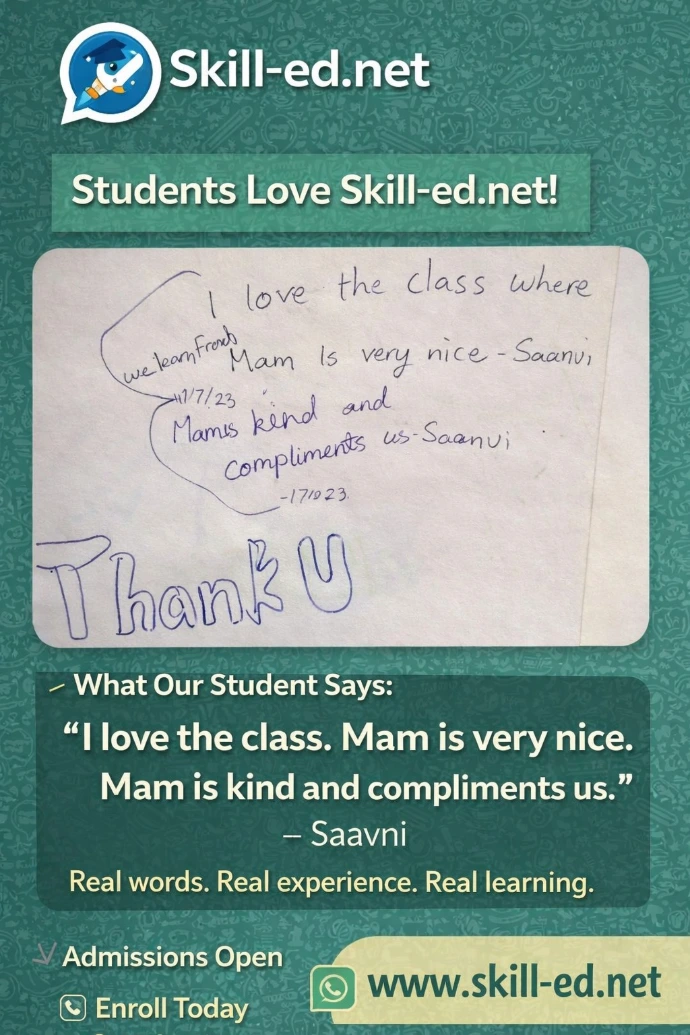 Skill-ed.net
Students Love Skill-ed.net!
I love the class where
we learn French
Mam is very nice - Saanvi
17/7/23
Mam is kind and
compliments us - Saanvi
-171023.
Thank U
What Our Student Says:
“I love the class. Mam is very nice.
Mam is kind and compliments us.”
– Saavni
Real words. Real experience. Real learning.
Admissions Open
www.skill-ed.net
Enroll Today